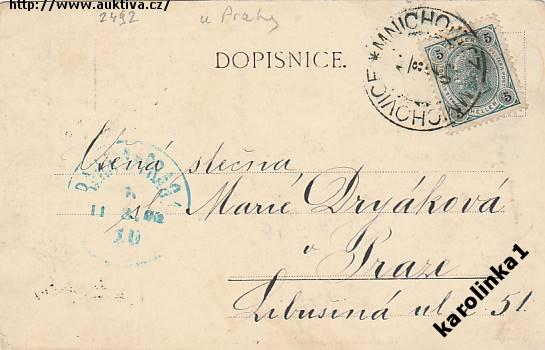 http://www.auktiva.cz/
2492 u Prahy
DOPISNICE.
MNICHOVICE * MNICHOVICE
5 5
HELLER
Ctěná slečna,
sl. Marie Dryáková
v Praze
Libušina ul. č 51.
11
10
karolinka1